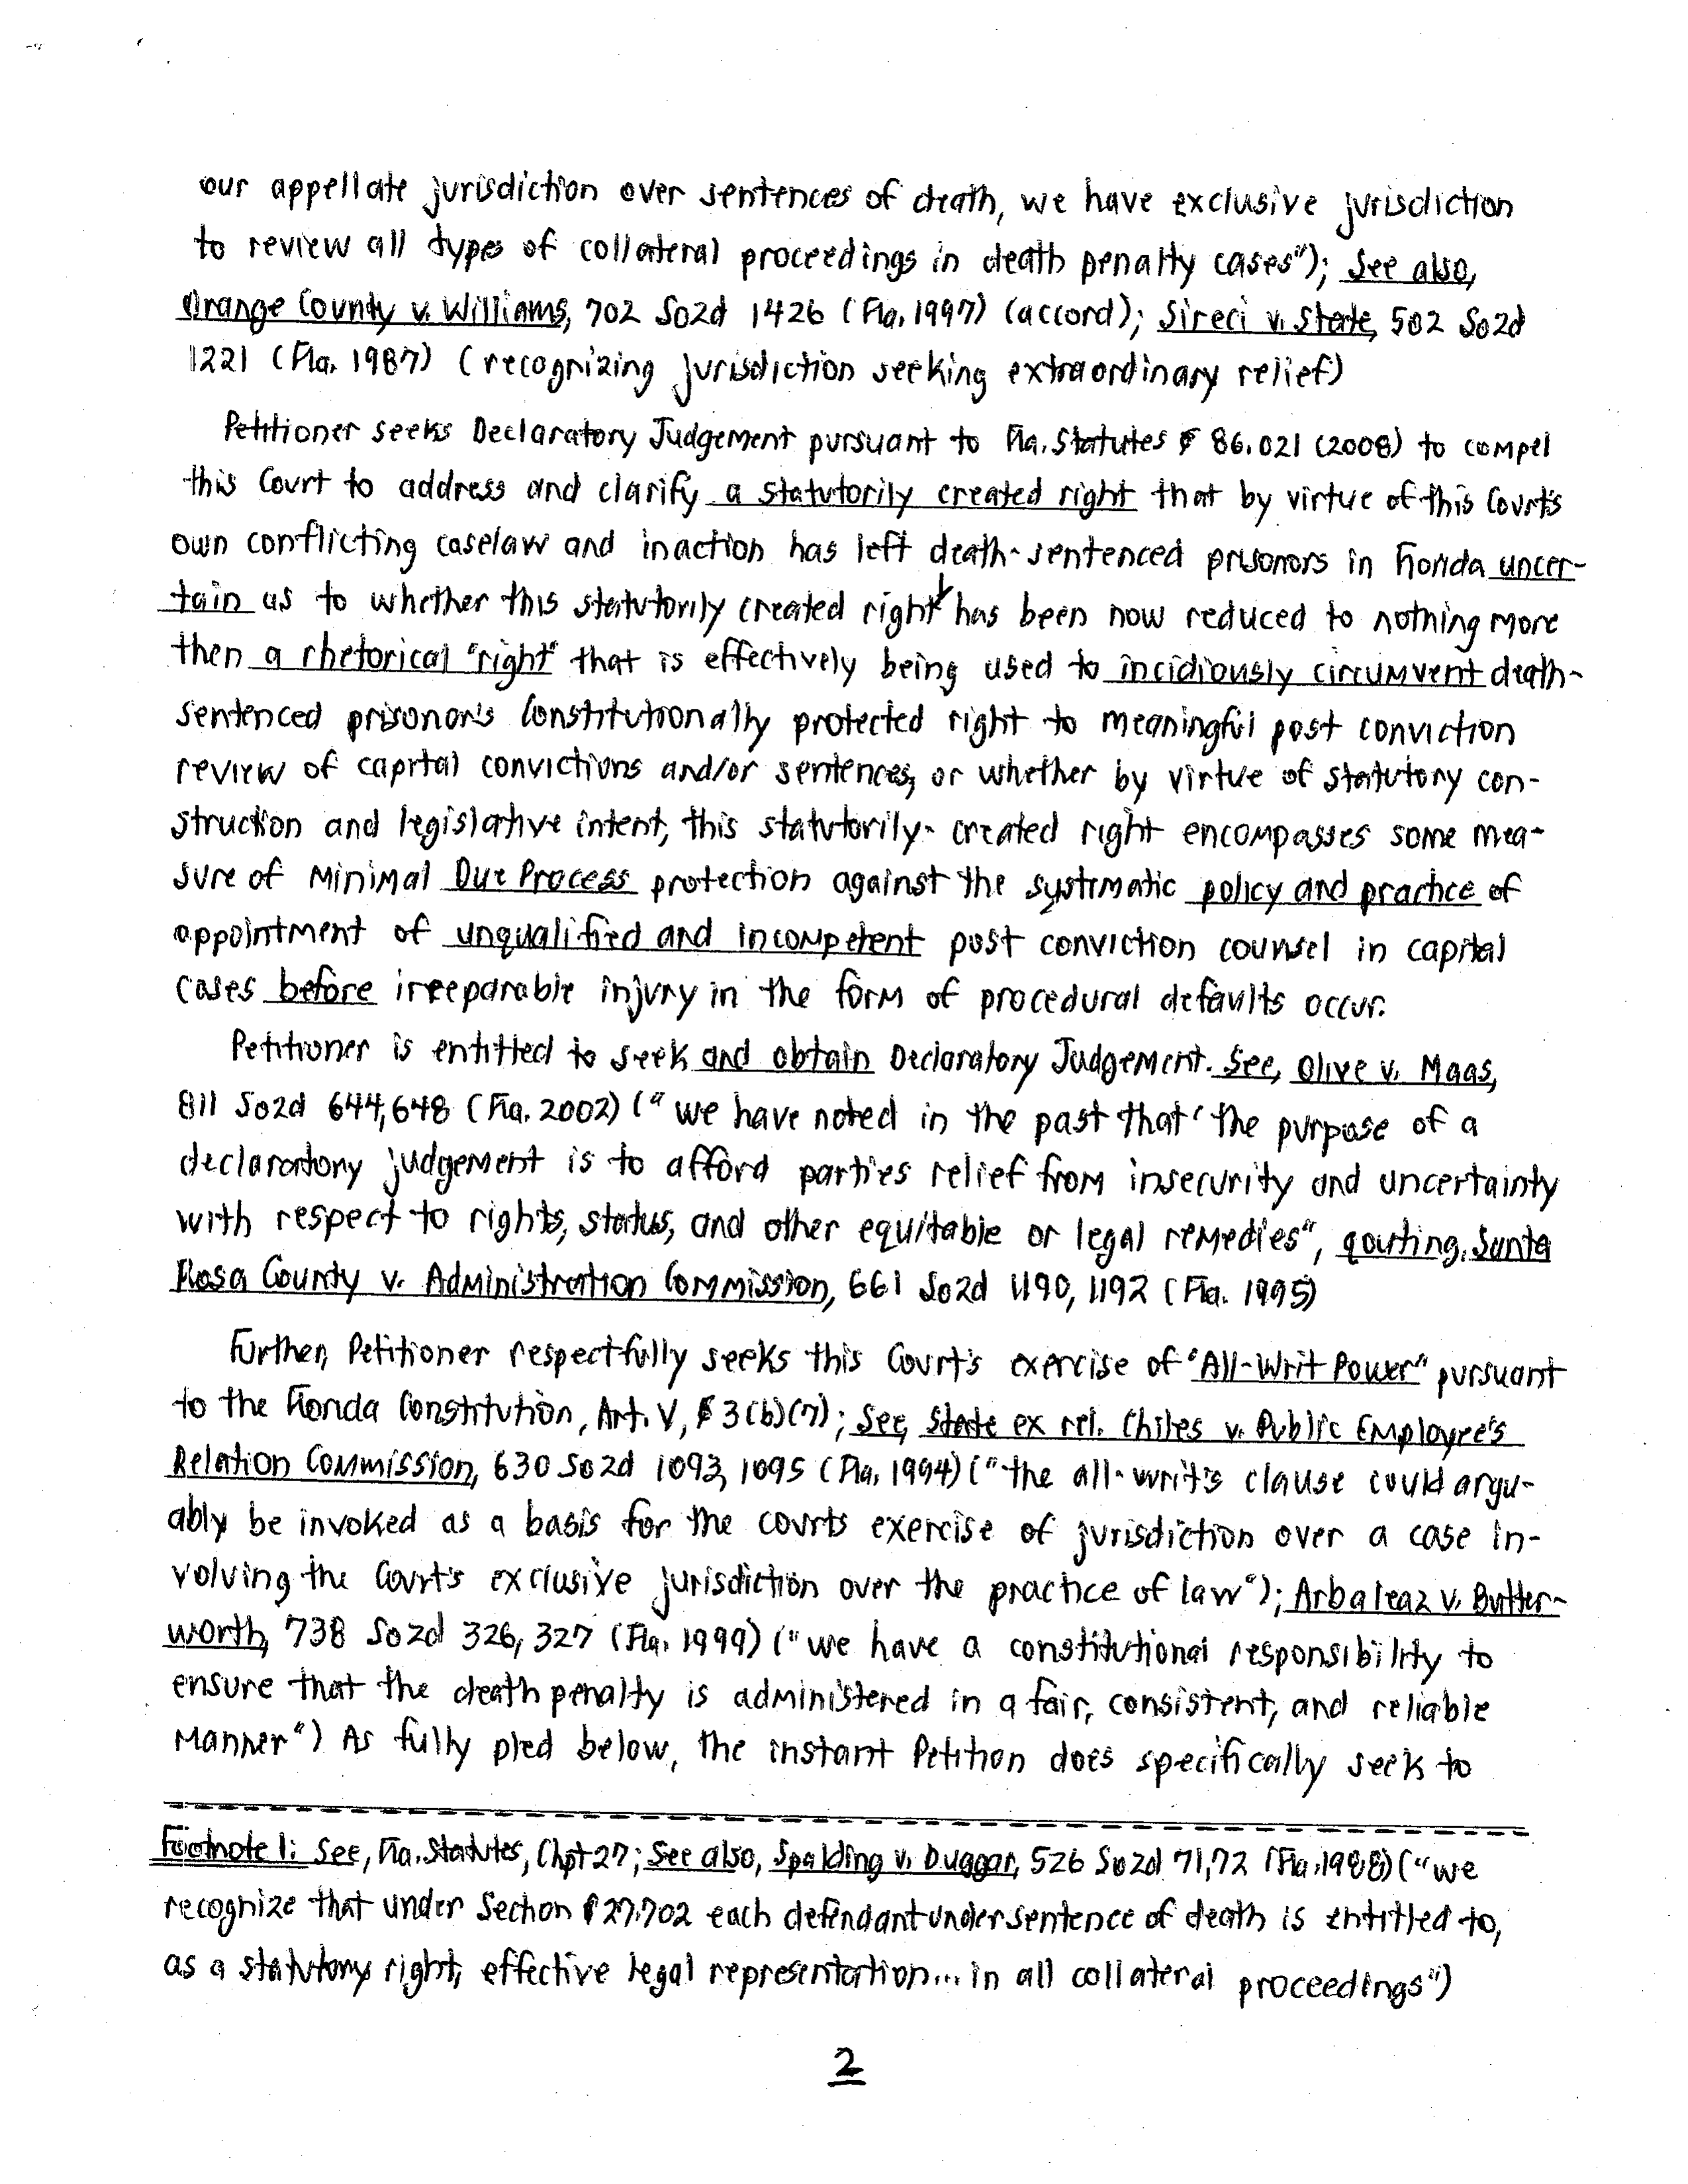 our appellate jurisdiction over sentences of death, we have exclusive jurisdiction
to review all types of collateral proceedings in death penalty cases"); See also,
Orange County v. Williams, 702 So2d 1426 (Fla. 1997) (accord); Sireci v. State, 502 So2d
1221 (Fla. 1987) (recognizing jurisdiction seeking extraordinary relief)
Petitioner seeks Declaratory Judgement pursuant to Fla. Statutes § 86.021 (2008) to compel
this Court to address and clarify a statutorily created right that by virtue of this Court's
own conflicting caselaw and inaction has left death-sentenced prisonors in Florida uncer-
tain as to whether this statutorily created right¹ has been now reduced to nothing more
then a rhetorical "right" that is effectively being used to incidiously circumvent death-
sentenced prisonor's Constitutionally protected right to meaningful post conviction
review of capital convictions and/or sentences, or whether by virtue of statutory con-
struction and legislative intent, this statutorily-created right encompasses some mea-
sure of minimal Due Process protection against the systematic policy and practice of
appointment of unqualified and incompetent post conviction counsel in capital
cases before irreeparable injury in the form of procedural defaults occur.
Petitioner is entitled to seek and obtain Declaratory Judgement. See, Olive v. Maas,
811 So2d 644, 648 (Fla. 2002) ("we have noted in the past that 'the purpose of a
declaratory judgement is to afford parties relief from insecurity and uncertainty
with respect to rights, status, and other equitable or legal remedies", qouting, Santa
Rosa County v. Administration Commission, 661 So2d 1190, 1192 (Fla. 1995)
Further, Petitioner respectfully seeks this Court's exercise of "All-Writ Power" pursuant
to the Florida Constitution, Art. V, § 3(b)(7); See, State ex rel. Chiles v. Public Employee's
Relation Commission, 630 So2d 1093, 1095 (Fla. 1994) ("the all-writ's clause could argu-
ably be invoked as a basis for the courts exercise of jurisdiction over a case in-
volving the Court's exclusive jurisdiction over the practice of law"); Arbaleaz v. Butter-
worth, 738 So2d 326, 327 (Fla. 1999) ("we have a constitutional responsibility to
ensure that the death penalty is administered in a fair, consistent, and reliable
manner") As fully pled below, the instant Petition does specifically seek to
Footnote 1: See, Fla. Statutes, Chpt 27; See also, Spalding v. Duggar, 526 So2d 71, 72 (Fla. 1988) ("we
recognize that under Section § 27.702 each defendant under sentence of death is entitled to,
as a statutory right, effective legal representation... in all collateral proceedings")
2